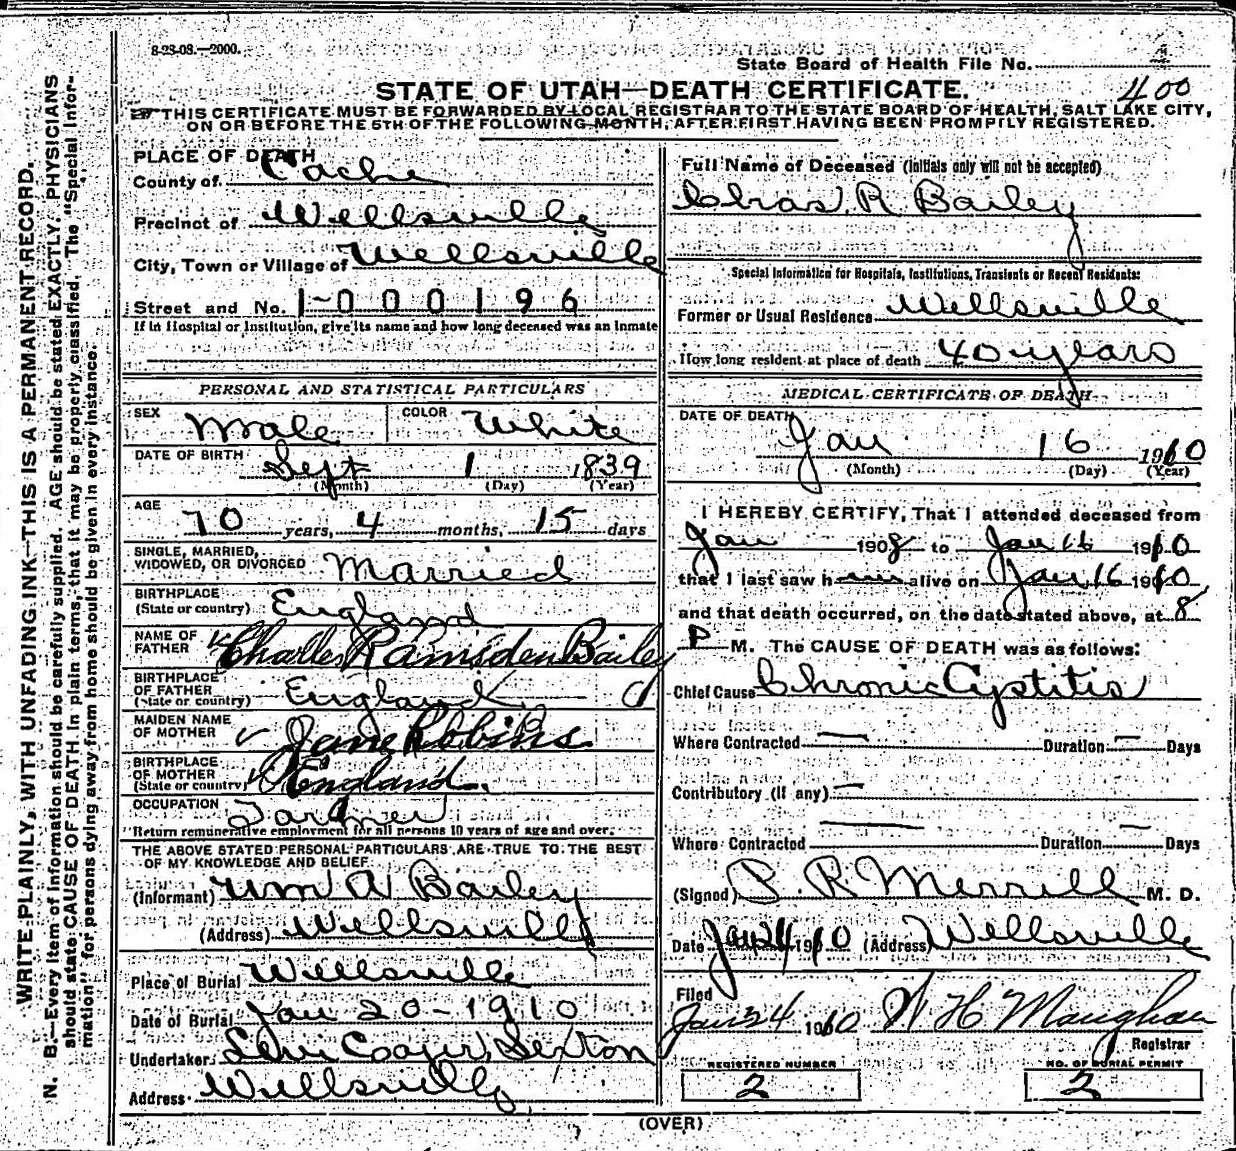 8-23-08.—2000.
State Board of Health File No.
400
STATE OF UTAH—DEATH CERTIFICATE.
THIS CERTIFICATE MUST BE FORWARDED BY LOCAL REGISTRAR TO THE STATE BOARD OF HEALTH, SALT LAKE CITY,
ON OR BEFORE THE 5TH OF THE FOLLOWING MONTH, AFTER FIRST HAVING BEEN PROMPTLY REGISTERED.
WRITE PLAINLY, WITH UNFADING INK—THIS IS A PERMANENT RECORD.
N. B.—Every item of information should be carefully supplied. AGE should be stated EXACTLY. PHYSICIANS
should state CAUSE OF DEATH in plain terms, that it may be properly classified. The "Special Infor-
mation" for persons dying away from home should be given in every instance.
PLACE OF DEATH
County of Cache
Precinct of Wellsville
City, Town or Village of Wellsville
Street and No. 1-000196
If in Hospital or Institution, give its name and how long deceased was an inmate
PERSONAL AND STATISTICAL PARTICULARS
SEX Male COLOR White
DATE OF BIRTH Sept 1 1839
(Month) (Day) (Year)
AGE
70 years, 4 months, 15 days
SINGLE, MARRIED,
WIDOWED, OR DIVORCED Married
BIRTHPLACE
(State or country) England
NAME OF
FATHER Charles Ramsden Bailey
BIRTHPLACE
OF FATHER
(State or country) England
MAIDEN NAME
OF MOTHER Jane Robbins
BIRTHPLACE
OF MOTHER
(State or country) England.
OCCUPATION Farmer
Return remunerative employment for all persons 10 years of age and over.
THE ABOVE STATED PERSONAL PARTICULARS ARE TRUE TO THE BEST
OF MY KNOWLEDGE AND BELIEF
(Informant) Wm A Bailey
(Address) Wellsville
Place of Burial Wellsville
Date of Burial Jan 20-1910
Undertaker Levi Cooper, Sexton
Address Wellsville
Full Name of Deceased (initials only will not be accepted)
Chas. R. Bailey
Special Information for Hospitals, Institutions, Transients or Recent Residents:
Former or Usual Residence Wellsville
How long resident at place of death 40 years
MEDICAL CERTIFICATE OF DEATH
DATE OF DEATH
Jan 16 1910
(Month) (Day) (Year)
I HEREBY CERTIFY, That I attended deceased from
Jan 1908 to Jan 16 1910
that I last saw him alive on Jan 16 1910
and that death occurred, on the date stated above, at 8
P M. The CAUSE OF DEATH was as follows:
Chief Cause Chronic Cystitis
Where Contracted — Duration — Days
Contributory (if any) —
Where Contracted — Duration — Days
(Signed) P. R. Merrill M. D.
Date 1910 (Address) Wellsville
Filed
Jan 24 1910 W H Maughan
Registrar
REGISTERED NUMBER
2
NO. OF BURIAL PERMIT
2
(OVER)